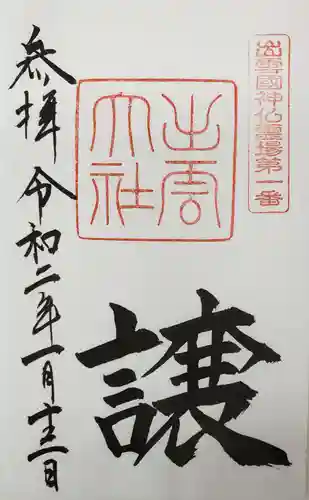 出雲國神仏霊場第一番
出雲
大社
譲
参拝 令和二年一月十二日